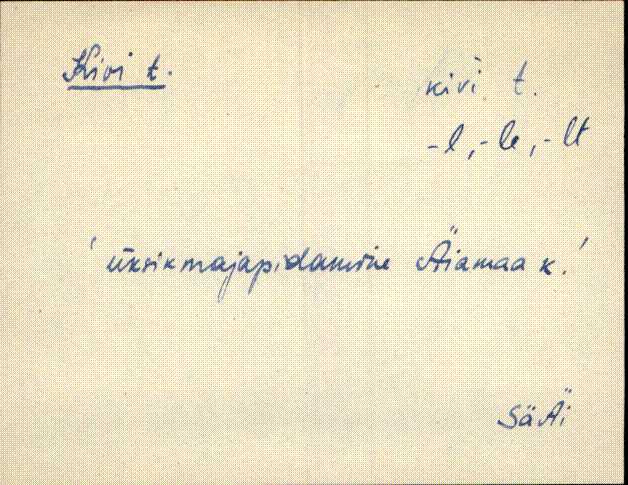 Kivi t.
kivi t.
-l, -le, -lt
'üksikmajapidamine Ääamaa k.'
SäÄi